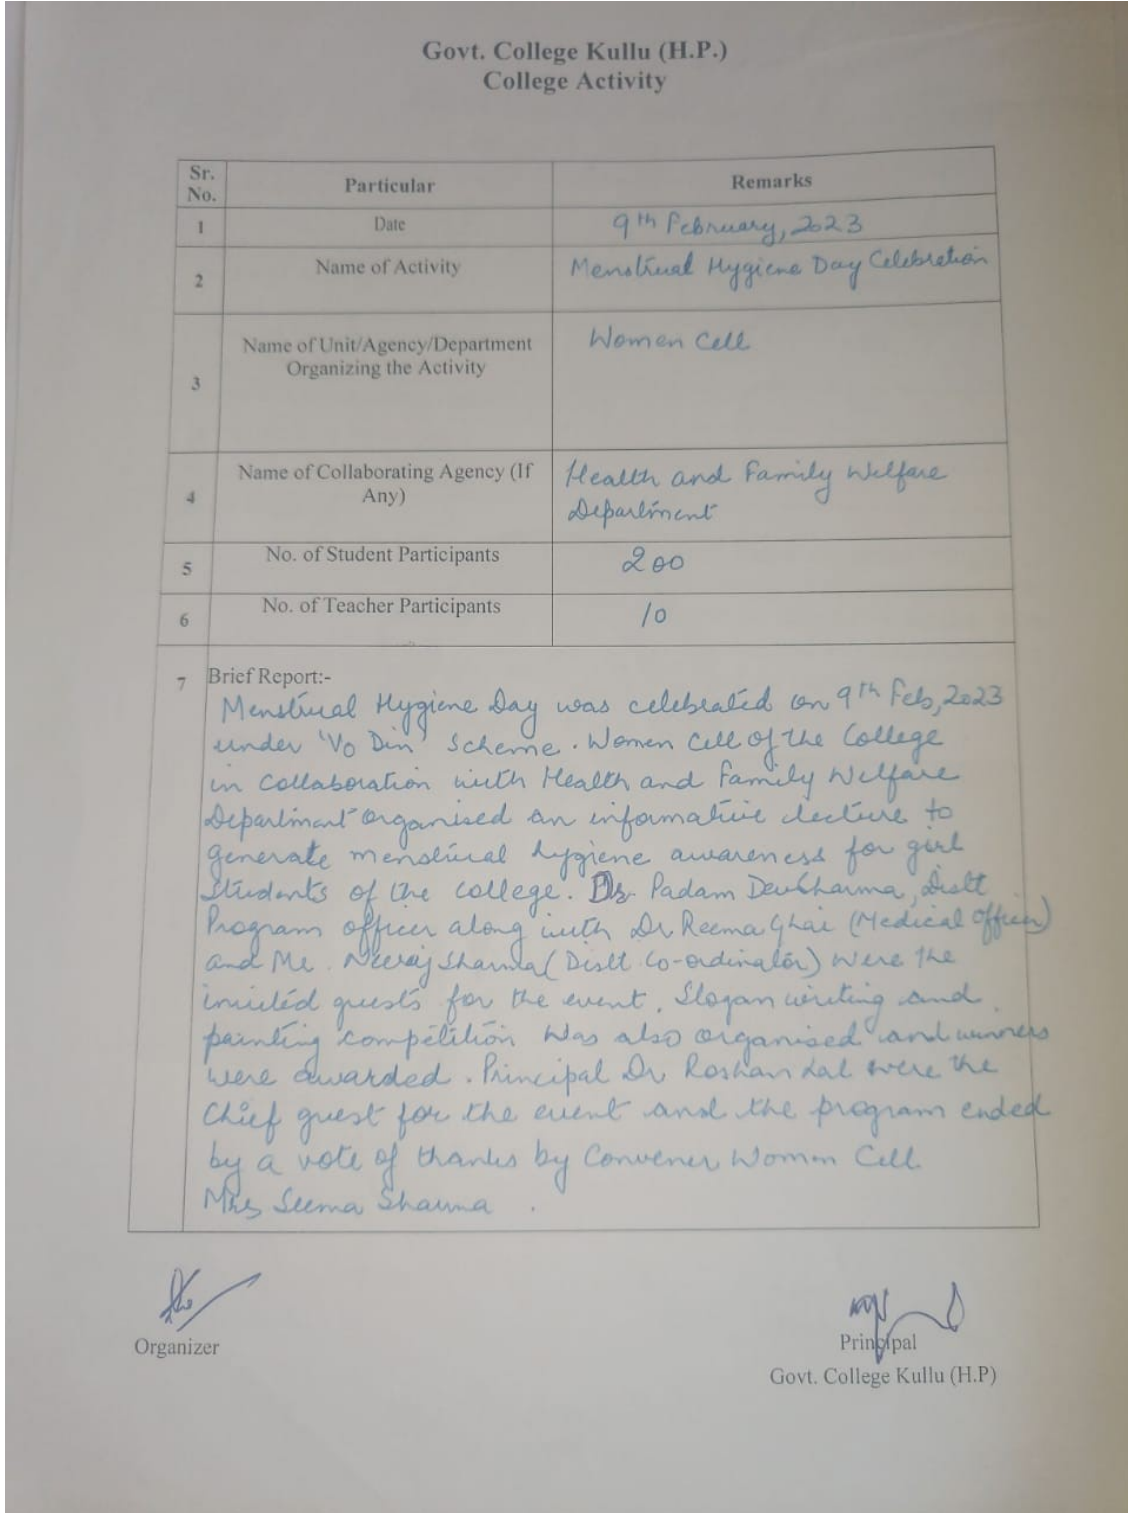 Govt. College Kullu (H.P.)
College Activity
Sr. No. Particular Remarks
1 Date 9th February, 2023
2 Name of Activity Menstrual Hygiene Day Celebration
3 Name of Unit/Agency/Department Organizing the Activity Women Cell
4 Name of Collaborating Agency (If Any) Health and Family Welfare Department
5 No. of Student Participants 200
6 No. of Teacher Participants 10
7 Brief Report:-
Menstrual Hygiene Day was celebrated on 9th Feb, 2023
under 'Vo Din' Scheme. Women Cell of the College
in collaboration with Health and Family Welfare
Department organised an informative lecture to
generate menstrual hygiene awareness for girl
students of the college. Dr. Padam Dev Sharma, Distt
Program officer along with Dr Reema Ghai (Medical Officer)
and Mr. Neeraj Sharma (Distt. Co-ordinator) were the
invited guests for the event. Slogan writing and
painting competition was also organised and winners
were awarded. Principal Dr Roshan Lal were the
Chief guest for the event and the program ended
by a vote of thanks by Convener Women Cell
Mrs Seema Sharma.
Organizer
Principal
Govt. College Kullu (H.P)